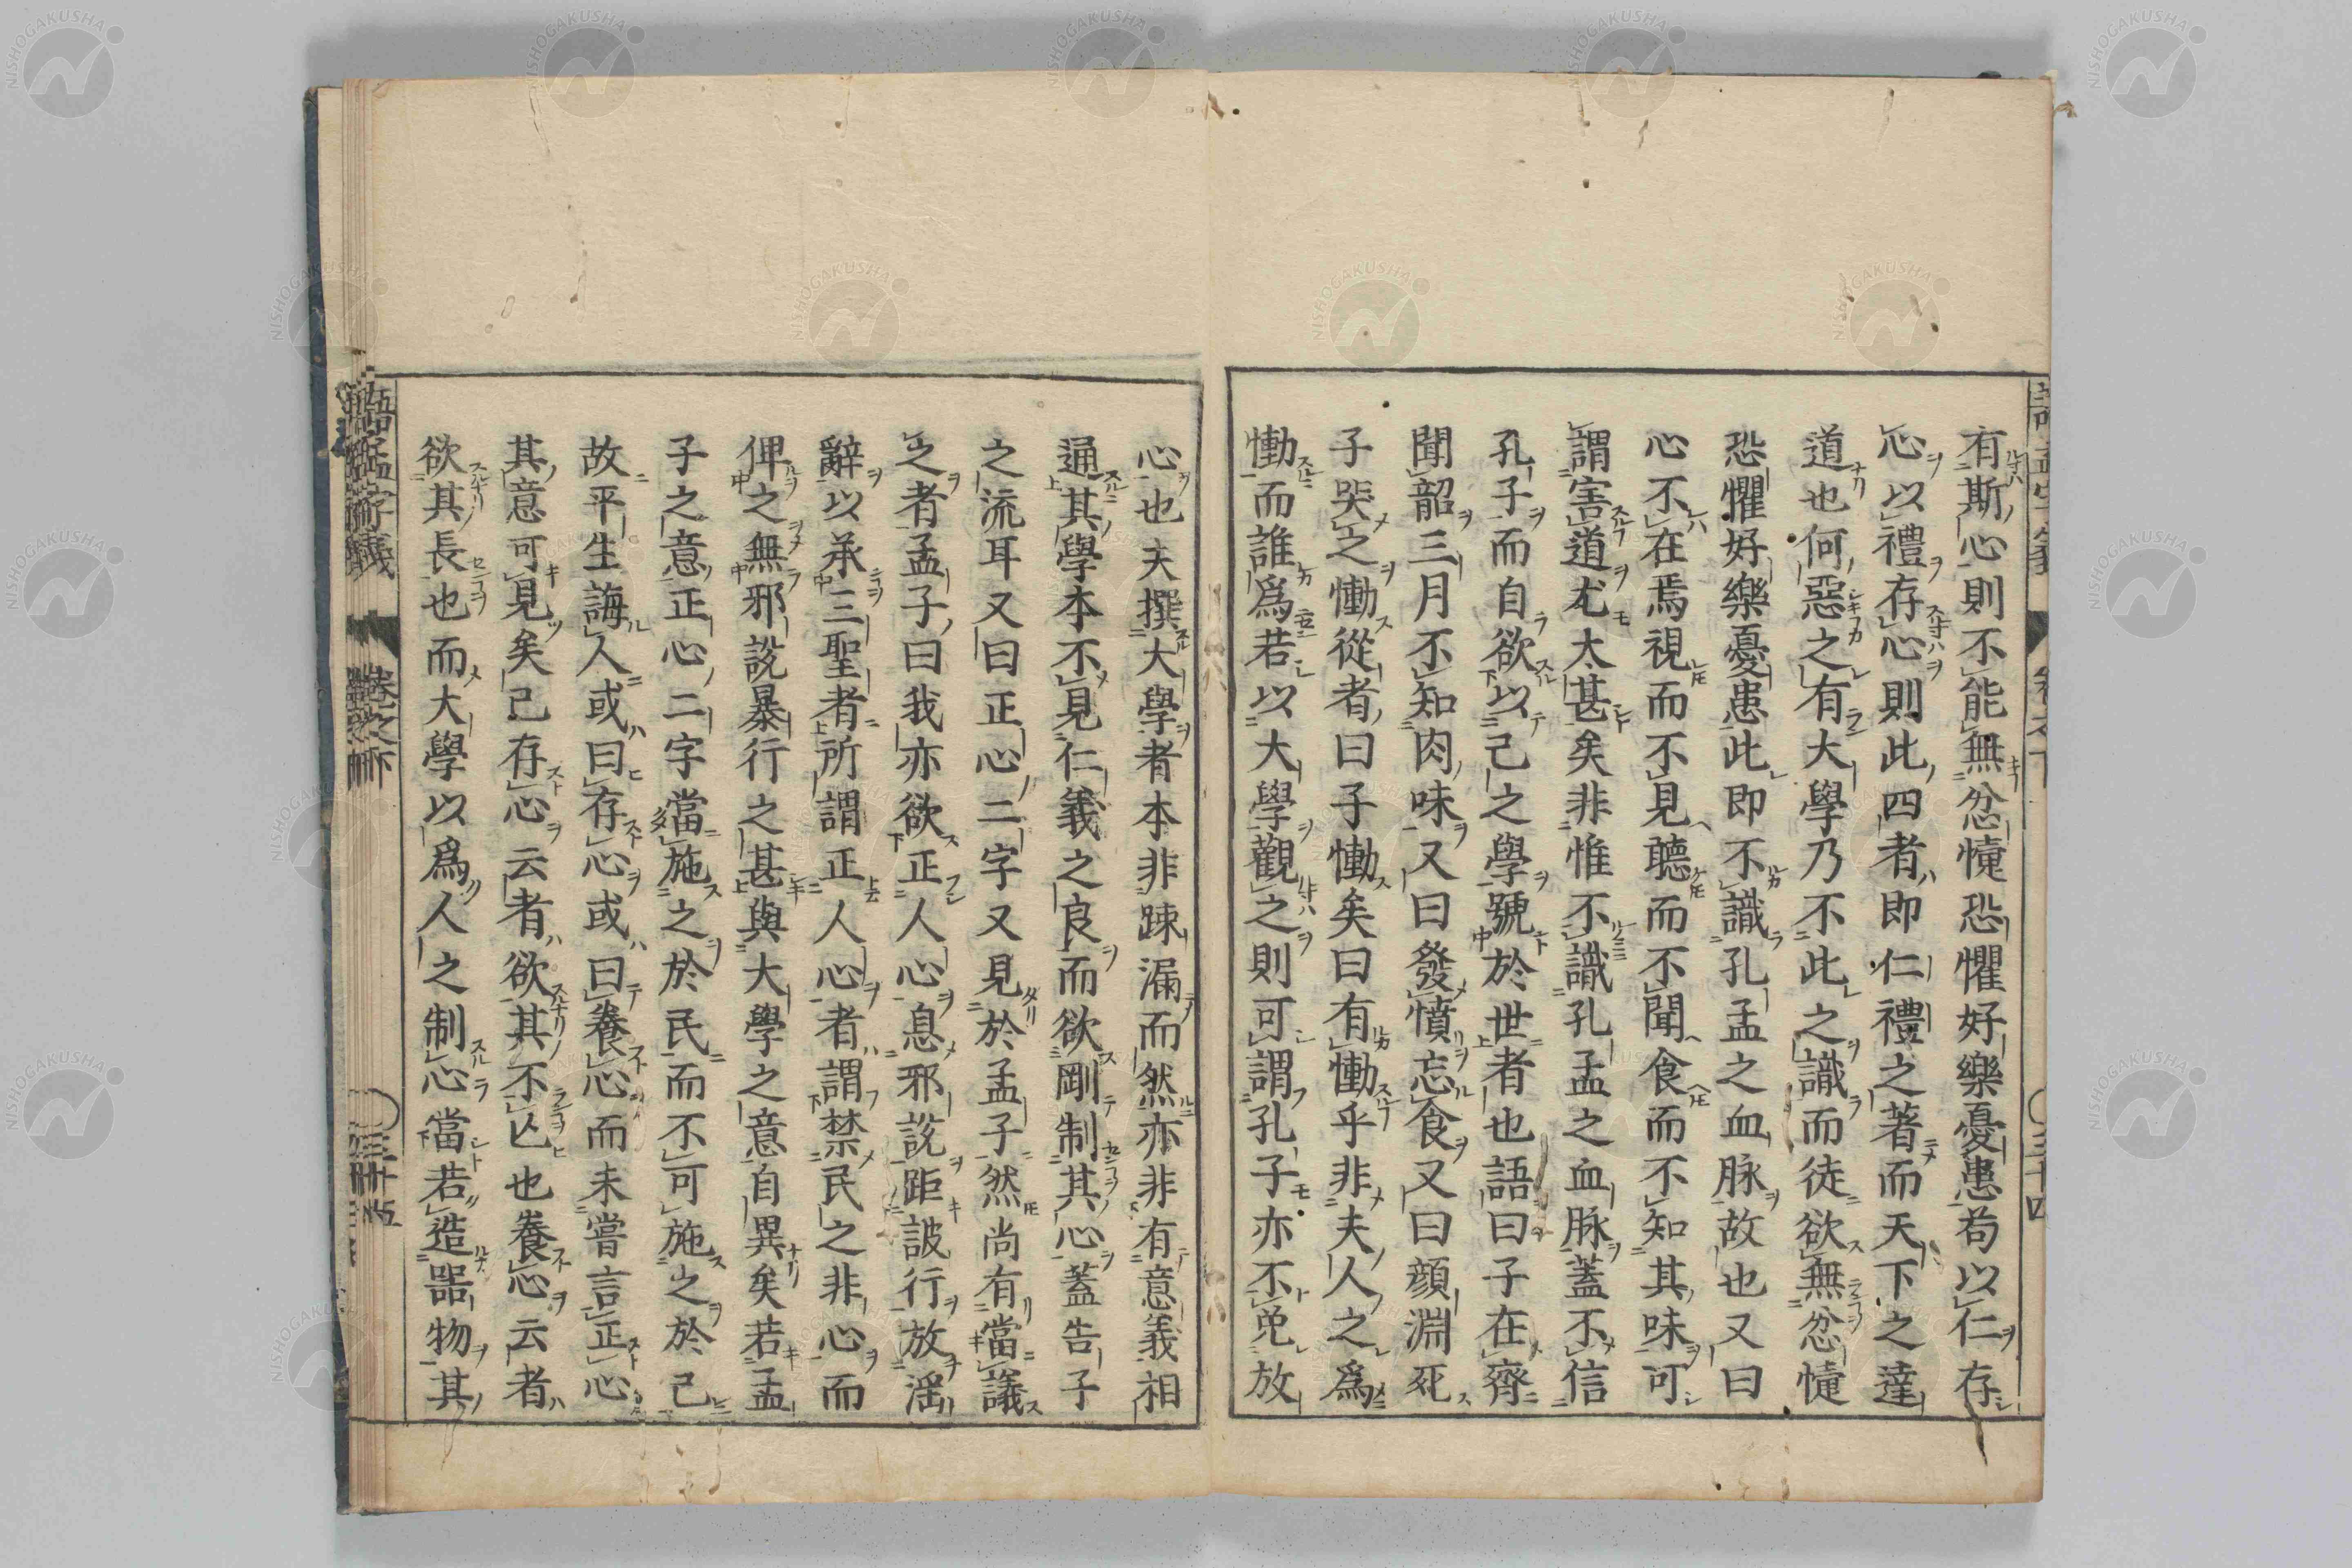 有斯心則不能無忿懥恐懼好樂憂患苟以仁存
心以禮存心則此四者即仁禮之著而天下之達
道也何惡之有大學乃不此之識而徒欲無忿懥
恐懼好樂憂患此即不識孔孟之血脉故也又曰
心不在焉視而不見聽而不聞食而不知其味可
謂害道尤大甚矣非惟不識孔孟之血脉蓋不信
孔子而自欲以己之學號於世者也語曰子在齊
聞韶三月不知肉味又曰發憤忘食又曰顔淵死
子哭之慟從者曰子慟矣曰有慟乎非夫人之爲
慟而誰爲若以大學觀之則可謂孔子亦不免放
心也夫撰大學者本非踈漏而然亦非有意義相
通其學本不見仁義之良而欲剛制其心蓋告子
之流耳又曰正心二字又見於孟子然尚有當議
之者孟子曰我亦欲正人心息邪說距詖行放淫
辭以承三聖者所謂正人心者謂禁民之非心而
俾之無邪說暴行之甚與大學之意自異矣若孟
子之意正心二字當施之於民而不可施之於己
故平生誨人或曰存心或曰養心而未嘗言正心
其意可見矣己存心云者欲其不亾也養心云者
欲其長也而大學以爲人之制心當若造噐物其
語孟字義 卷之下 三十五